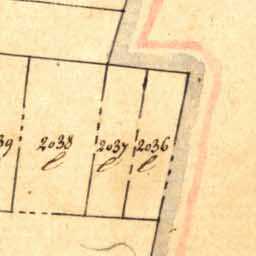 39 2038 2037 2036
e e e